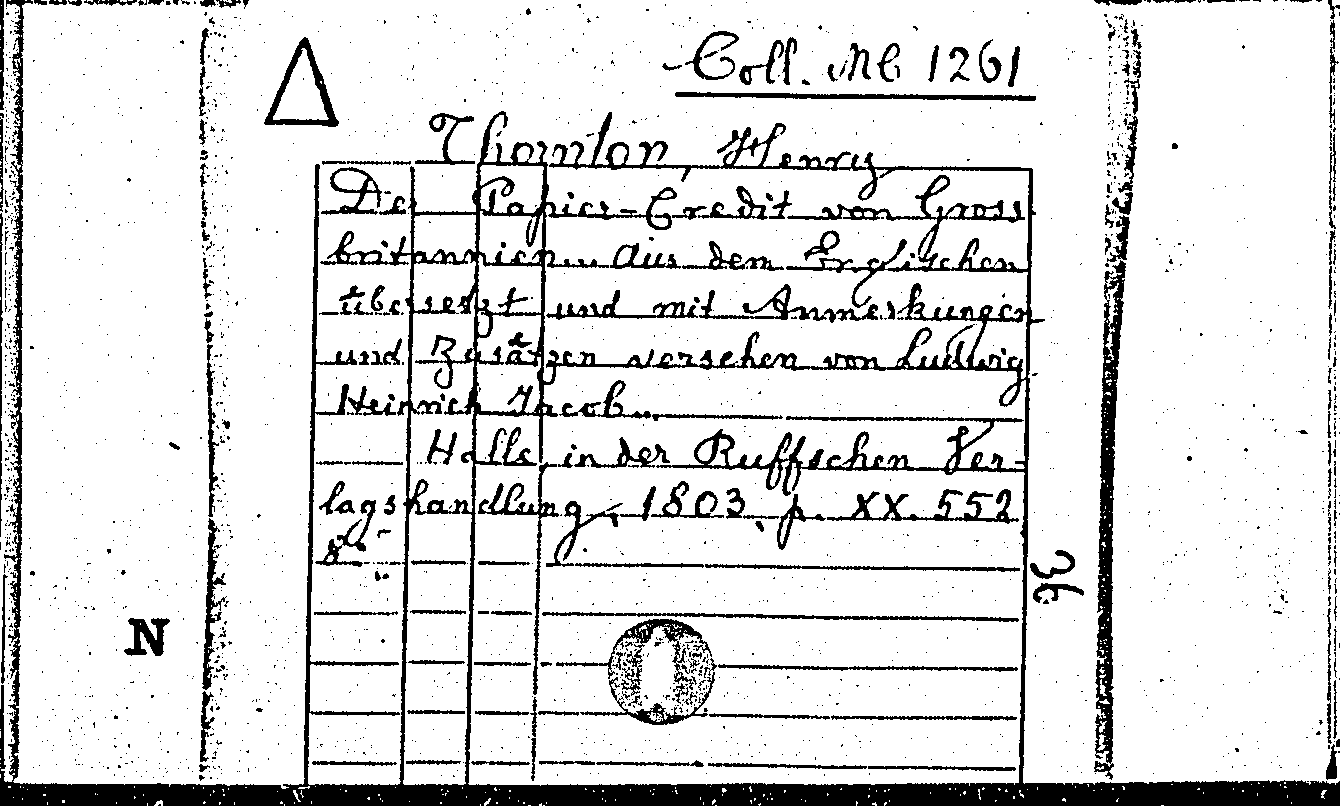 Coll. MC 1261
Thornton, Henry
Der Papier-Credit von Gross
britannien... Aus dem Englischen
übersetzt und mit Anmerkungen
und Zusätzen versehen von Ludwig
Heinrich Jacob...
Halle, in der Ruffschen Ver-
lagshandlung, 1803, p. XX. 552
8°
36
N